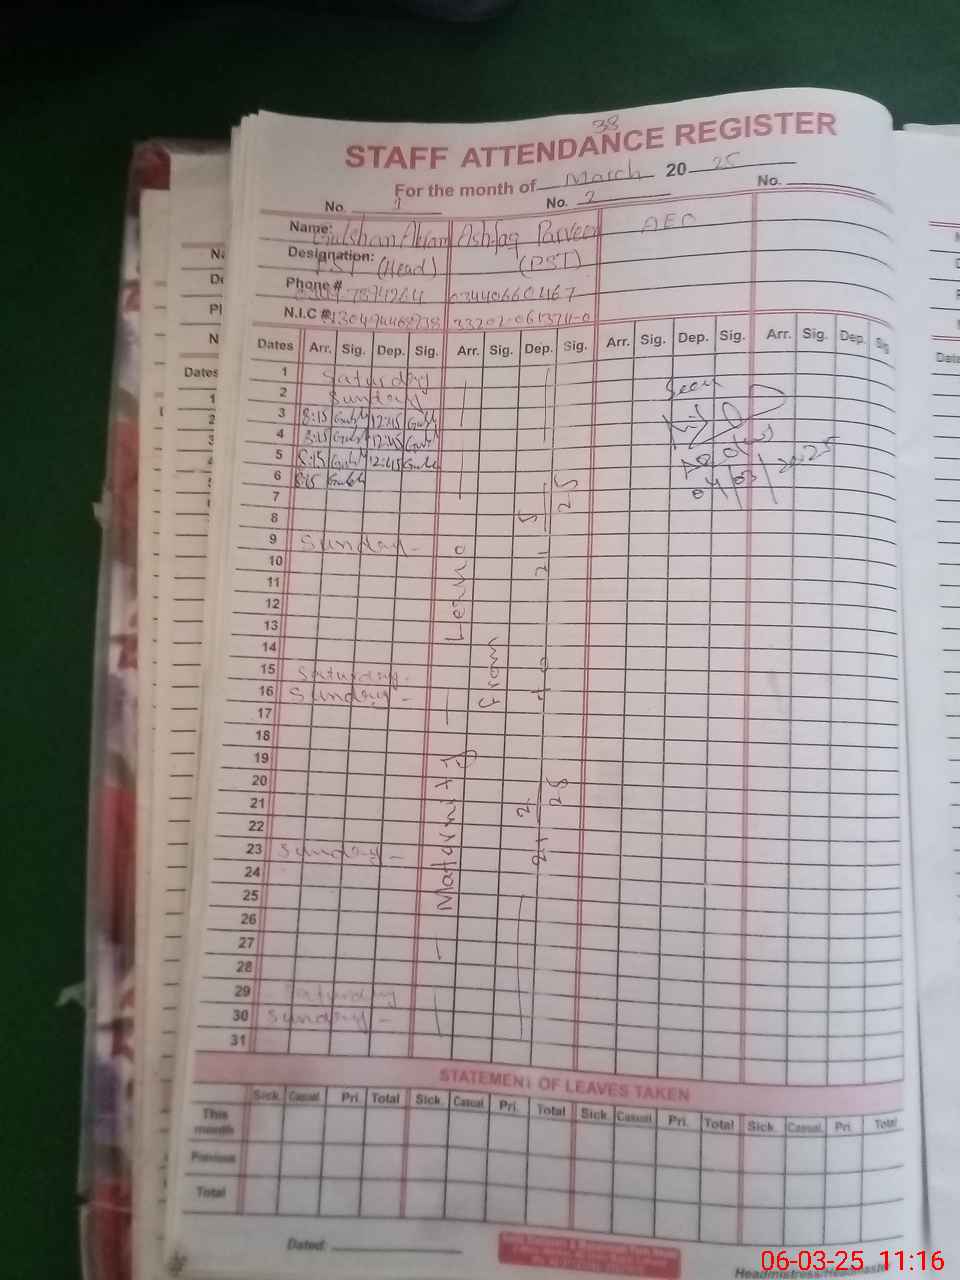 38
STAFF ATTENDANCE REGISTER
For the month of March 20 25
No. 1 No. 2 No.
Name: Gulshan Akram Ashfaq Parveen AEO
Designation: PST (Head) (PST)
Phone # 7894264 03440660467
N.I.C #
Dates Arr. Sig. Dep. Sig. Arr. Sig. Dep. Sig. Arr. Sig. Dep. Sig. Arr. Sig. Dep. Sig
1 Saturday
2 Sunday
3 8:15 12:45
4 8:15 12:45
5 8:15 12:45
6 8:15
7
8
9 Sunday -
10
11
12
13
14
15 Saturday -
16 Sunday -
17
18
19
20
21
22
23 Sunday -
24
25
26
27
28
29 Saturday
30 Sunday -
31
Maternity Leave
From
to
Seen
04/03/2025
STATEMENT OF LEAVES TAKEN
Sick. Casual. Pri. Total Sick. Casual Pri. Total Sick. Casual. Pri. Total Sick. Casual. Pri. Total
This month
Previous
Total
Dated:
Headmistress/Headmaster
06-03-25 11:16